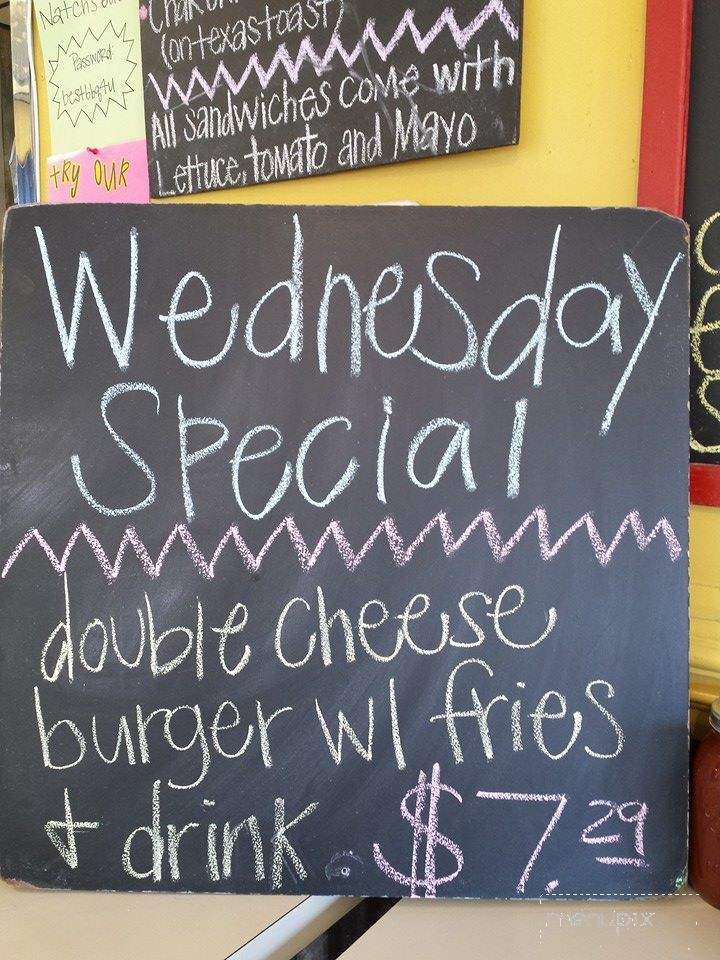 Password:
bestbbq4u
try OUR
(on texas toast)
All sandwiches come with
Lettuce, tomato and Mayo
Wednesday
Special
double cheese
burger w/ fries
+ drink $7.29
menupix